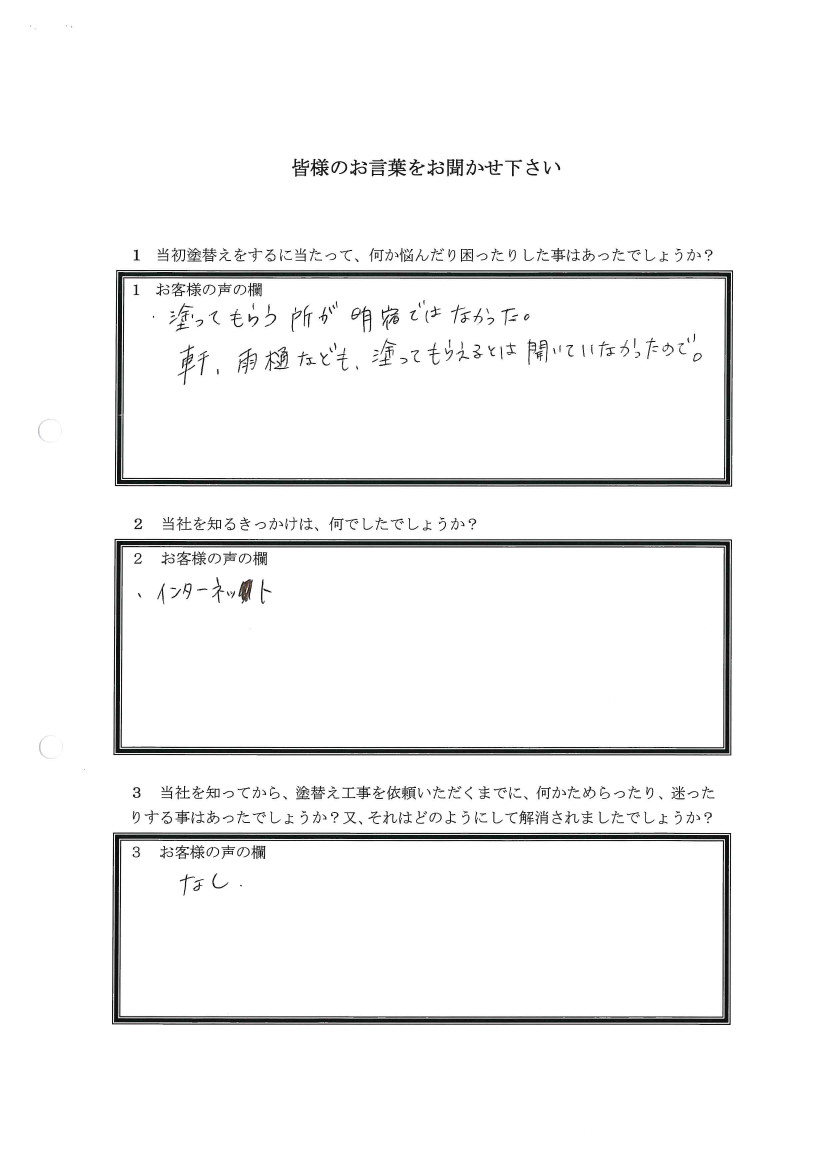 皆様のお言葉をお聞かせ下さい
1 当初塗替えをするに当たって、何か悩んだり困ったりした事はあったでしょうか？
1 お客様の声の欄
・塗ってもらう所が明宿ではなかった。
軒、雨樋なども、塗ってもらえるとは開いていなかったので。
2 当社を知るきっかけは、何でしたでしょうか？
2 お客様の声の欄
、インターネット
3 当社を知ってから、塗替え工事を依頼いただくまでに、何かためらったり、迷った
りする事はあったでしょうか？又、それはどのようにして解消されましたでしょうか？
3 お客様の声の欄
なし.